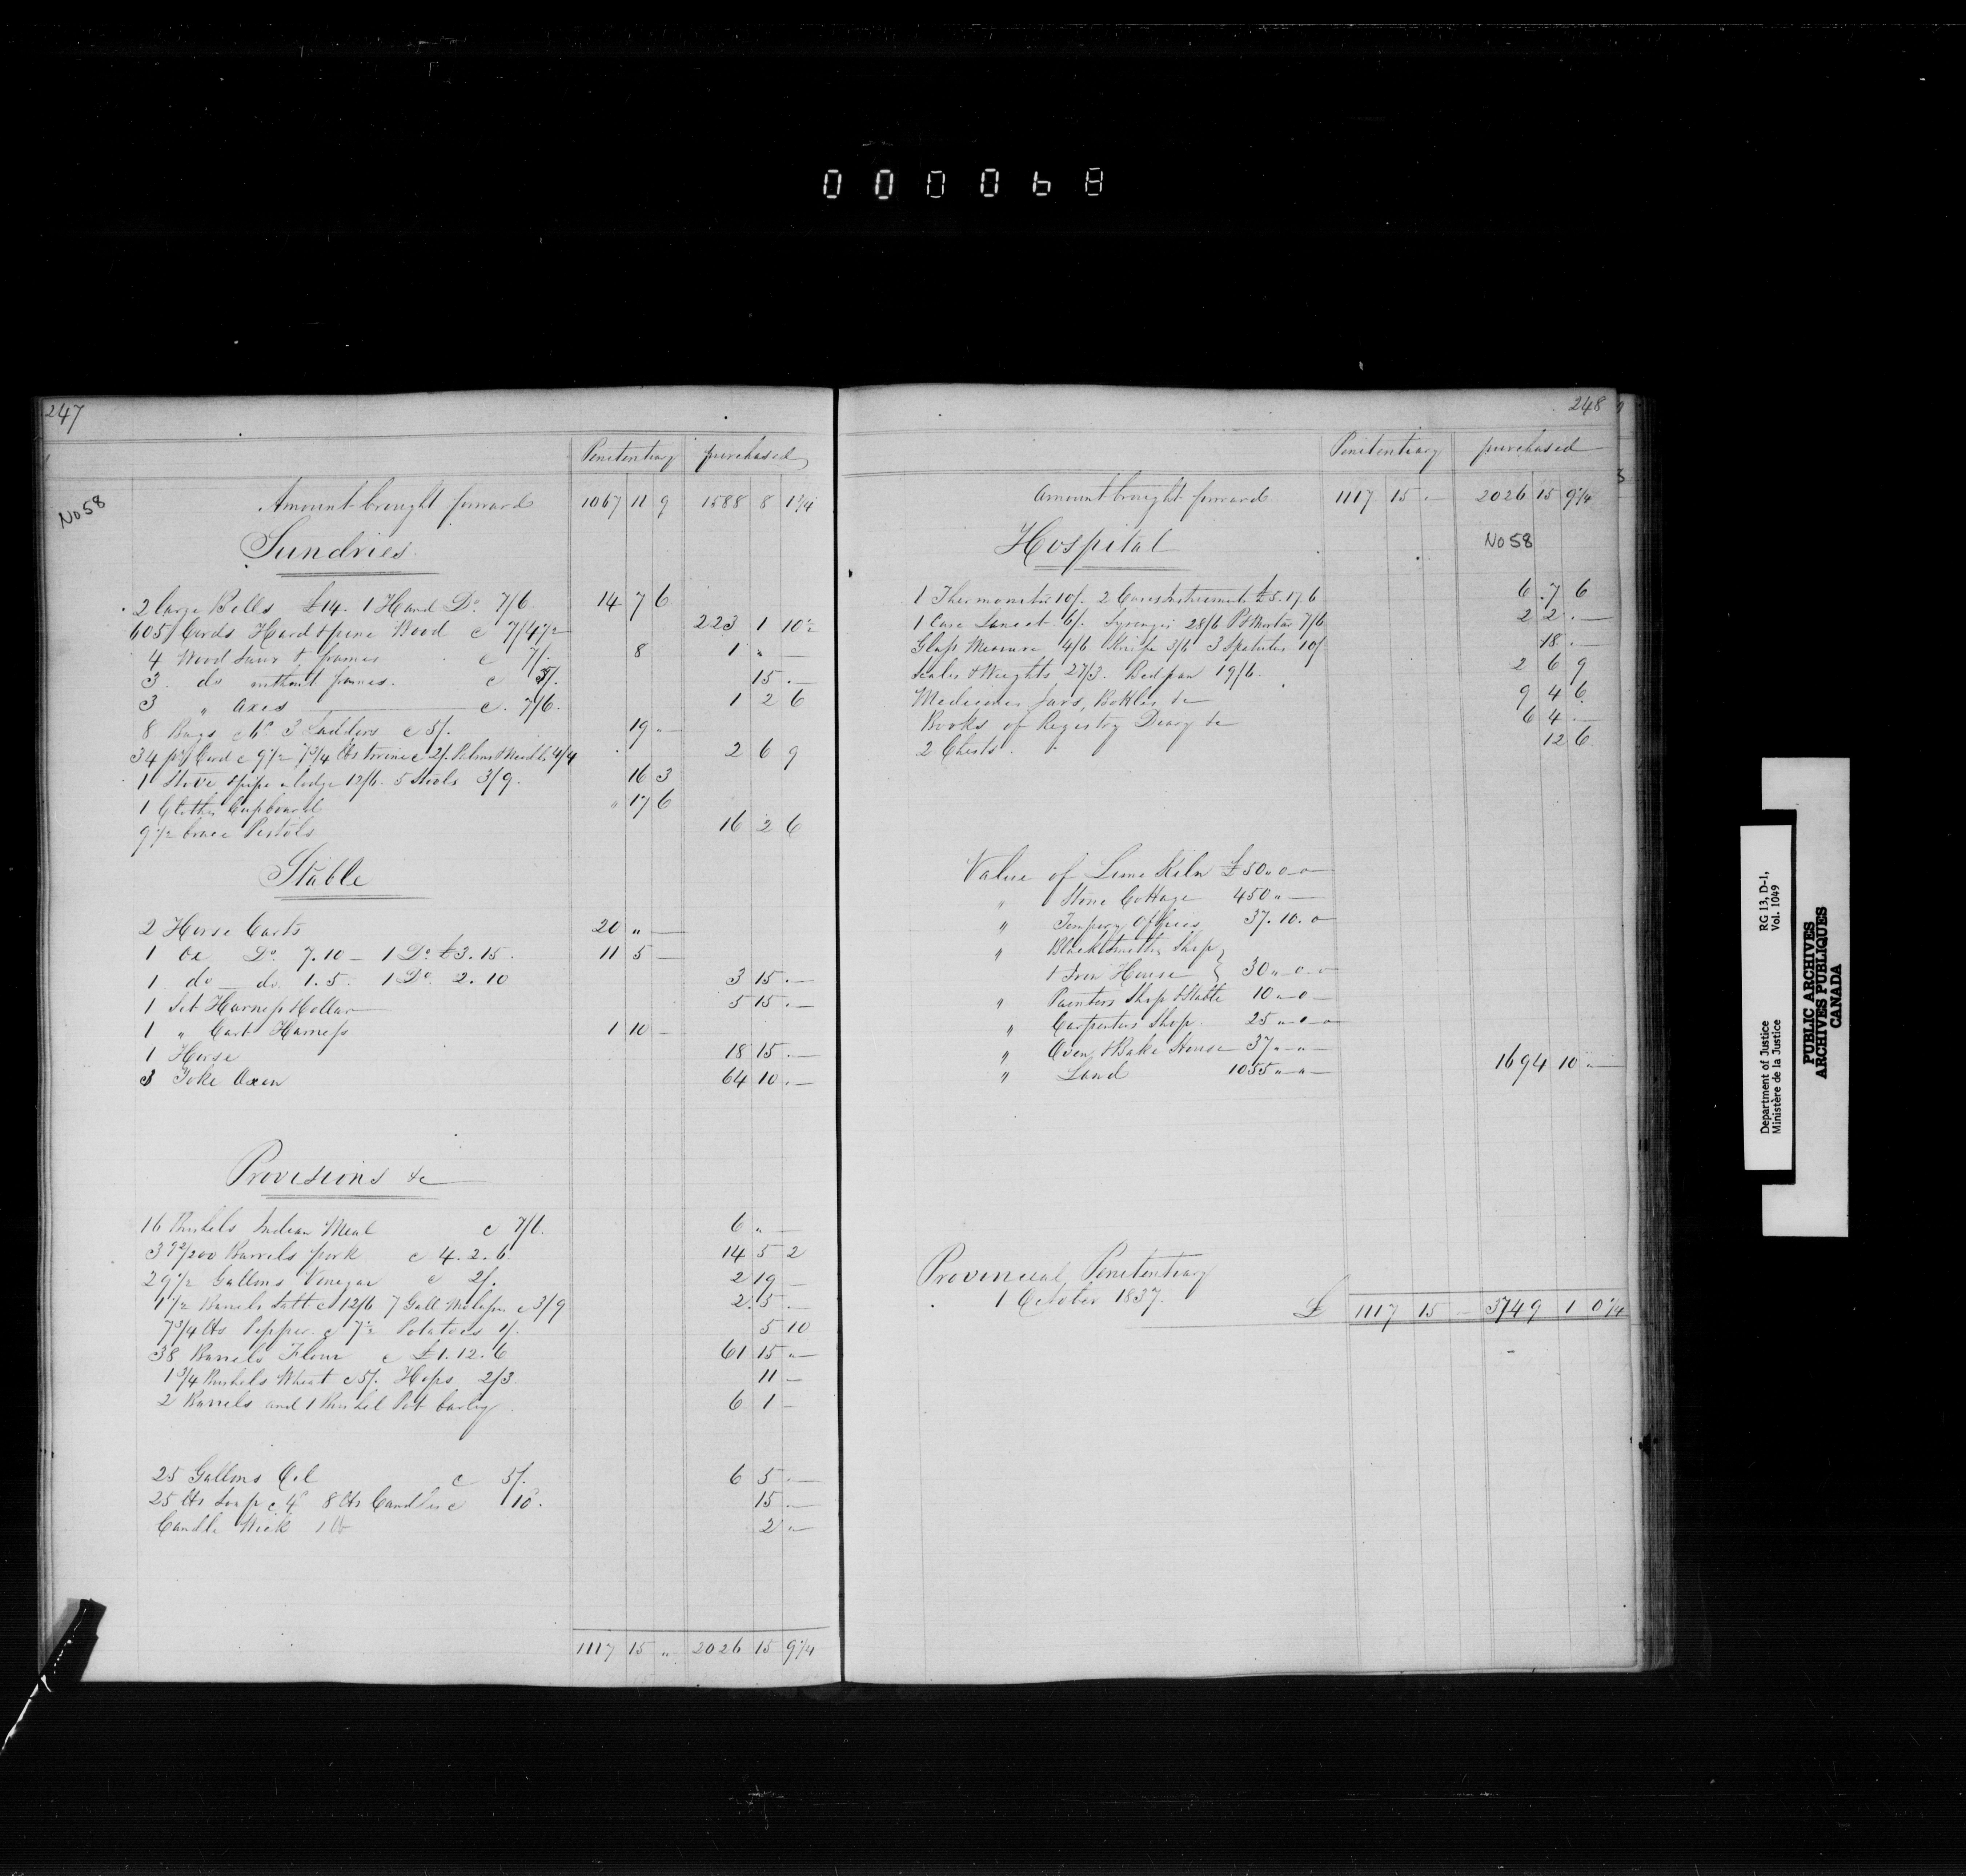 000068
247
Penitentiary purchased
No 58
Amount brought forward 1067 11 9 1588 8 1 1/4
Sundries
2 large Bells £14. 1 Hand Do. 7/6 14 7 6
605 Cords Hard & pine Wood c 7/4 1/2 223 1 10 1/2
4 Wood Saws & frames c 7/. 8 1 " —
3 do without frames. c 5/. 15 . —
3 " Axes c. 7/6. 1 2 6
8 Bags 3 Ladders c 5/. 19 " —
34 Cord c 9 1/2 7 3/4 lbs twine c 2/. Palms & Needle 4/4 2 6 9
1 Stove & pipe lodge 12/6. 5 Stools 3/9. 16 3
1 Clothes Cupboard " 17 6
9 1/2 brace Pistols 16 2 6
Stable
2 Horse Carts 20 " —
1 Ox Do. 7.10 – 1 Do. £3.15. 11 5 —
1 do – do. 1.5. 1 Do. 2.10 3 15 . —
1 Set Harness & Collar 5 15 . —
1 " Cart Harness 1 10 —
1 Horse 18 15 . —
3 Yoke Oxen 64 10 . —
Provisions &c
16 Bushels Indian Meal c 7/6. 6 " —
3 92/200 Barrels pork c 4.2.6 14 5 2
29 1/2 Gallons Vinegar c 2/. 2 19 —
1 1/2 Barrels Salt c 12/6 7 Gall Molasses c 3/9 2 5 . —
7 3/4 lbs Pepper c 7 1/2 Potatoes 1/. 5 10
38 Barrels Flour c £1.12.6 61 15 " —
1 3/4 Bushels Wheat c 5/. Hops 2/3 11 —
2 Barrels and 1 Bushel Pot barley 6 1 —
25 Gallons Oil c 5/. 6 5 . —
25 lbs Soap c 4d 8 lbs Candles c 10d. 15 . —
Candle Wick 1 lb 2 " —
1117 15 " 2026 15 9 1/4
248
Penitentiary purchased
Amount brought forward 1117 15 . — 2026 15 9 1/4
Hospital No 58
1 Thermometer 10/. 2 Cases Instruments £5.17.6 6 . 7 6
1 Case Lancet 6/. Syringes 28/6 Pt Mortar 7/6 2 2 . —
Glass Measure 4/6 Knife 3/6 3 Spatulas 10/ 18 . —
Scales & Weights 27/3. Bedpan 19/6. 2 6 9
Medicines Jars, Bottles &c 9 4 6
Books of Registry Diary &c 6 4 . —
2 Chests 12 6
Value of Lime Kiln £50 " 0 – 0 —
" Stone Cottage 450 " —
" Tempory Offices 37.10.0
" Blacksmiths Shop }
& Iron House } 30 " 0 – 0
" Painters Shop & Stable 10 – 0 —
" Carpenters Shop. 25 " 0 – 0
" Oven & Bake House 37 " — " —
" Land 1055 " — " — 1694 10 " —
Provincial Penitentiary
1 October 1837. £ 1117 15 — 3749 1 0 1/4
Department of Justice
Ministère de la Justice
RG 13, D-1,
Vol. 1049
PUBLIC ARCHIVES
ARCHIVES PUBLIQUES
CANADA